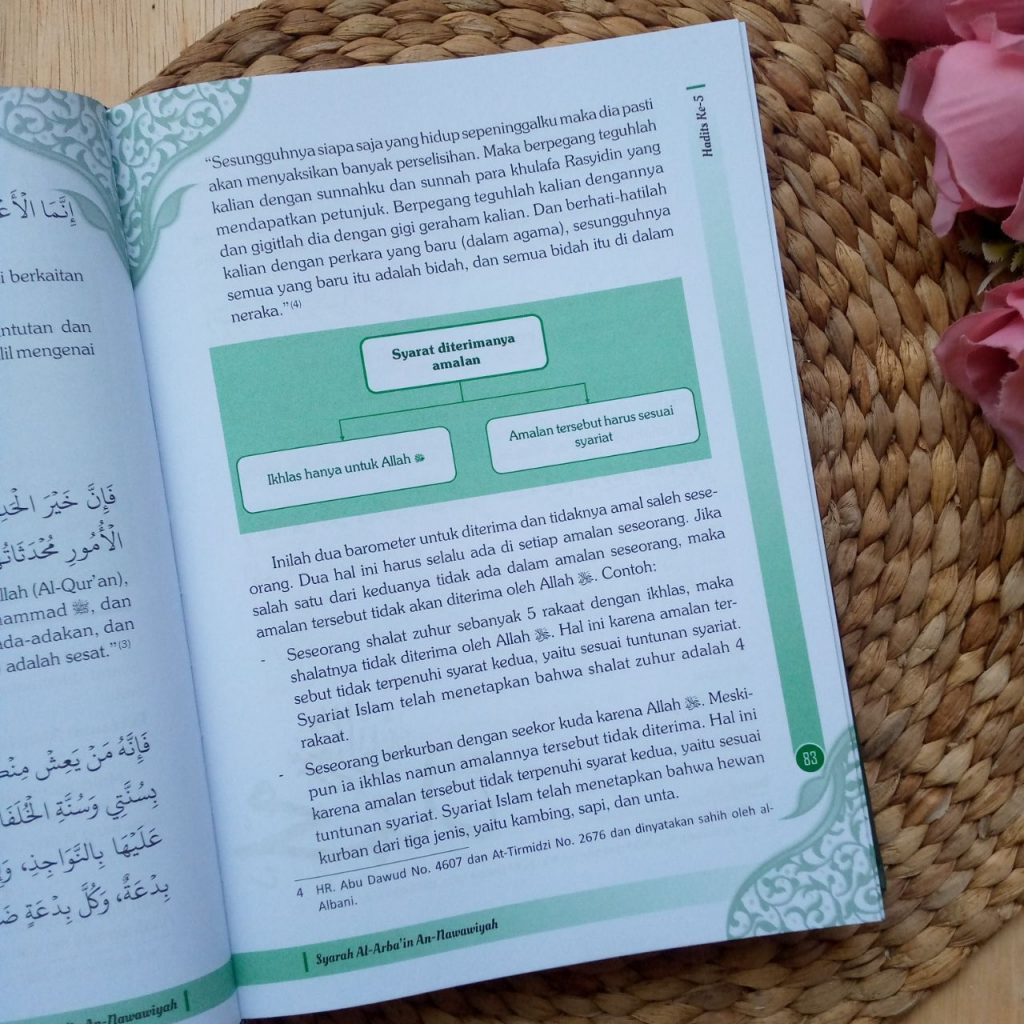 إِنَّمَا الْأَعْ
i berkaitan
ntutan dan
lil mengenai
فَإِنَّ خَيْرَ الْحَدِ
الْأُمُورِ مُحْدَثَاتُهَ
llah (Al-Qur'an),
ammad ﷺ, dan
da-adakan, dan
adalah sesat."(3)
فَإِنَّهُ مَنْ يَعِشْ مِنْكُ
بِسُنَّتِي وَسُنَّةِ الْخُلَفَا
عَلَيْهَا بِالنَّوَاجِذِ، وَإِ
بِدْعَةٌ، وَكُلَّ بِدْعَةٍ ضَ
An-Nawawiyah
Hadits Ke-5
"Sesungguhnya siapa saja yang hidup sepeninggalku maka dia pasti
akan menyaksikan banyak perselisihan. Maka berpegang teguhlah
kalian dengan sunnahku dan sunnah para khulafa Rasyidin yang
mendapatkan petunjuk. Berpegang teguhlah kalian dengannya
dan gigitlah dia dengan gigi geraham kalian. Dan berhati-hatilah
kalian dengan perkara yang baru (dalam agama), sesungguhnya
semua yang baru itu adalah bidah, dan semua bidah itu di dalam
neraka."(4)
Syarat diterimanya
amalan
Ikhlas hanya untuk Allah
Amalan tersebut harus sesuai
syariat
Inilah dua barometer untuk diterima dan tidaknya amal saleh sese-
orang. Dua hal ini harus selalu ada di setiap amalan seseorang. Jika
salah satu dari keduanya tidak ada dalam amalan seseorang, maka
amalan tersebut tidak akan diterima oleh Allah ﷻ. Contoh:
- Seseorang shalat zuhur sebanyak 5 rakaat dengan ikhlas, maka
shalatnya tidak diterima oleh Allah ﷻ. Hal ini karena amalan ter-
sebut tidak terpenuhi syarat kedua, yaitu sesuai tuntunan syariat.
Syariat Islam telah menetapkan bahwa shalat zuhur adalah 4
rakaat.
- Seseorang berkurban dengan seekor kuda karena Allah ﷻ. Meski-
pun ia ikhlas namun amalannya tersebut tidak diterima. Hal ini
karena amalan tersebut tidak terpenuhi syarat kedua, yaitu sesuai
tuntunan syariat. Syariat Islam telah menetapkan bahwa hewan
kurban dari tiga jenis, yaitu kambing, sapi, dan unta.
4 HR. Abu Dawud No. 4607 dan At-Tirmidzi No. 2676 dan dinyatakan sahih oleh al-
Albani.
83
Syarah Al-Arba'in An-Nawawiyah